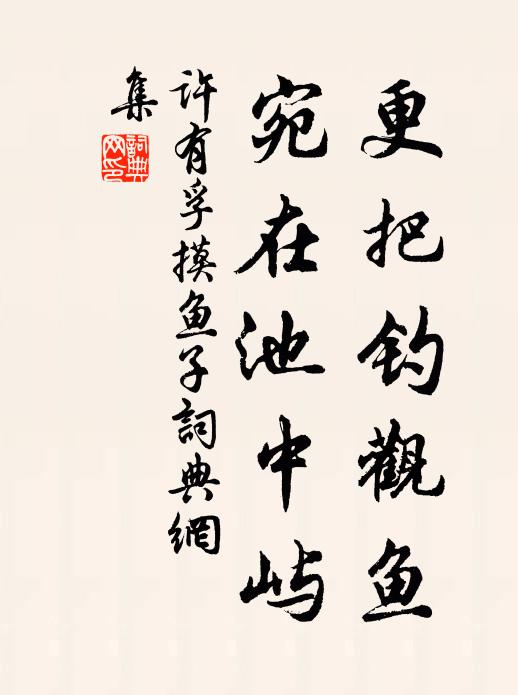 更把钓觀鱼
宛在池中屿
许有孚摸鱼子詞典網
集
詞典
网印